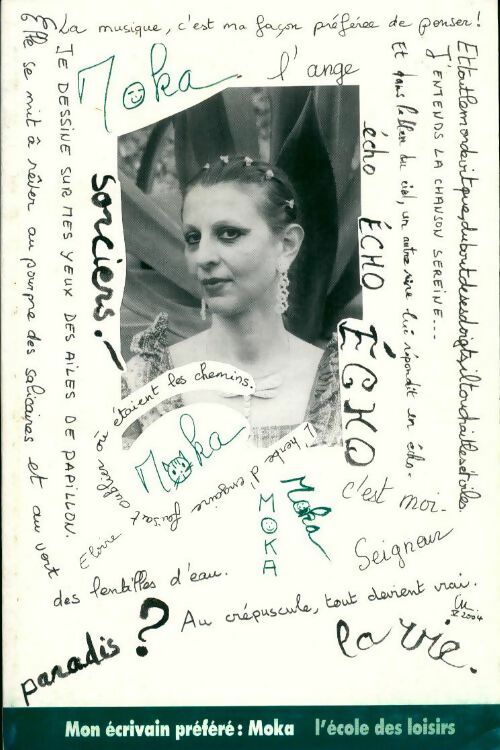 La musique, c'est ma façon préférée de penser !
Elle se mit à rêver au pourpre des salicaires et au vert
des lentilles d'eau.
JE DESSINE SUR MES YEUX DES AILES DE PAPILLON.
Moka
l'ange
Sorciers.
écho
écho
ÉCHO
ÉCHO
Et dans le bleu du ciel, un autre rire lui répondit en écho.
J'ENTENDS LA CHANSON SEREINE...
Et tout le monde vit que, du bout de ses doigts, il toucha it les étoiles
L'herbe d'engaire faisait oublier où étaient les chemins.
Moka
MOKA
Moka
c'est moi.
Seigneur
Au crépuscule, tout devient vrai.
2004
paradis ?
la vie.
Mon écrivain préféré : Moka l'école des loisirs